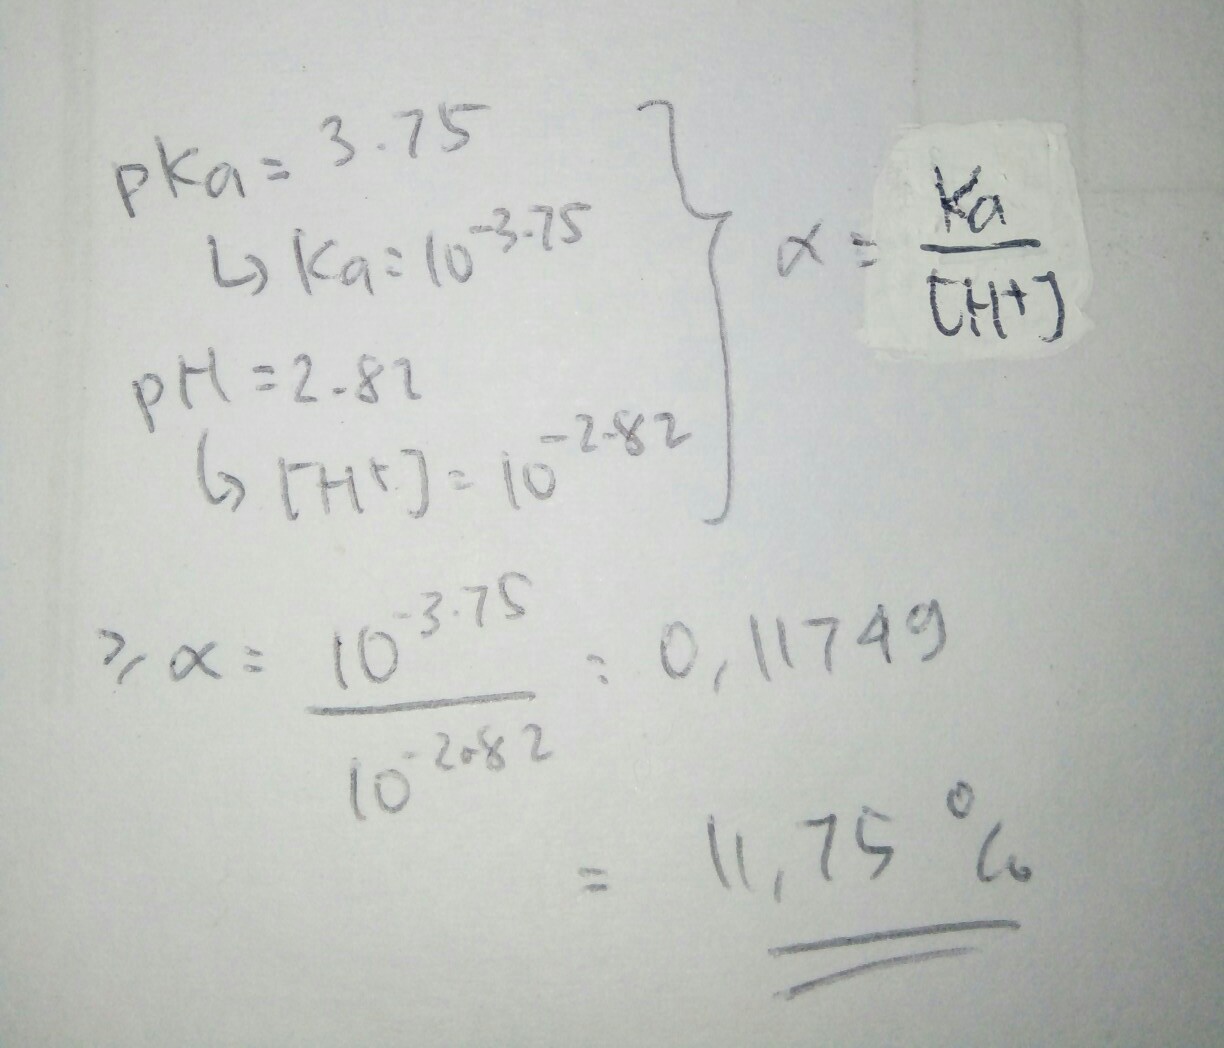 pKa = 3.75
↳ Ka = 10^-3.75
pH = 2.82
↳ [H+] = 10^-2.82
α = Ka / [H+]
α = 10^-3.75 / 10^-2.82 = 0,11749
= 11,75 %